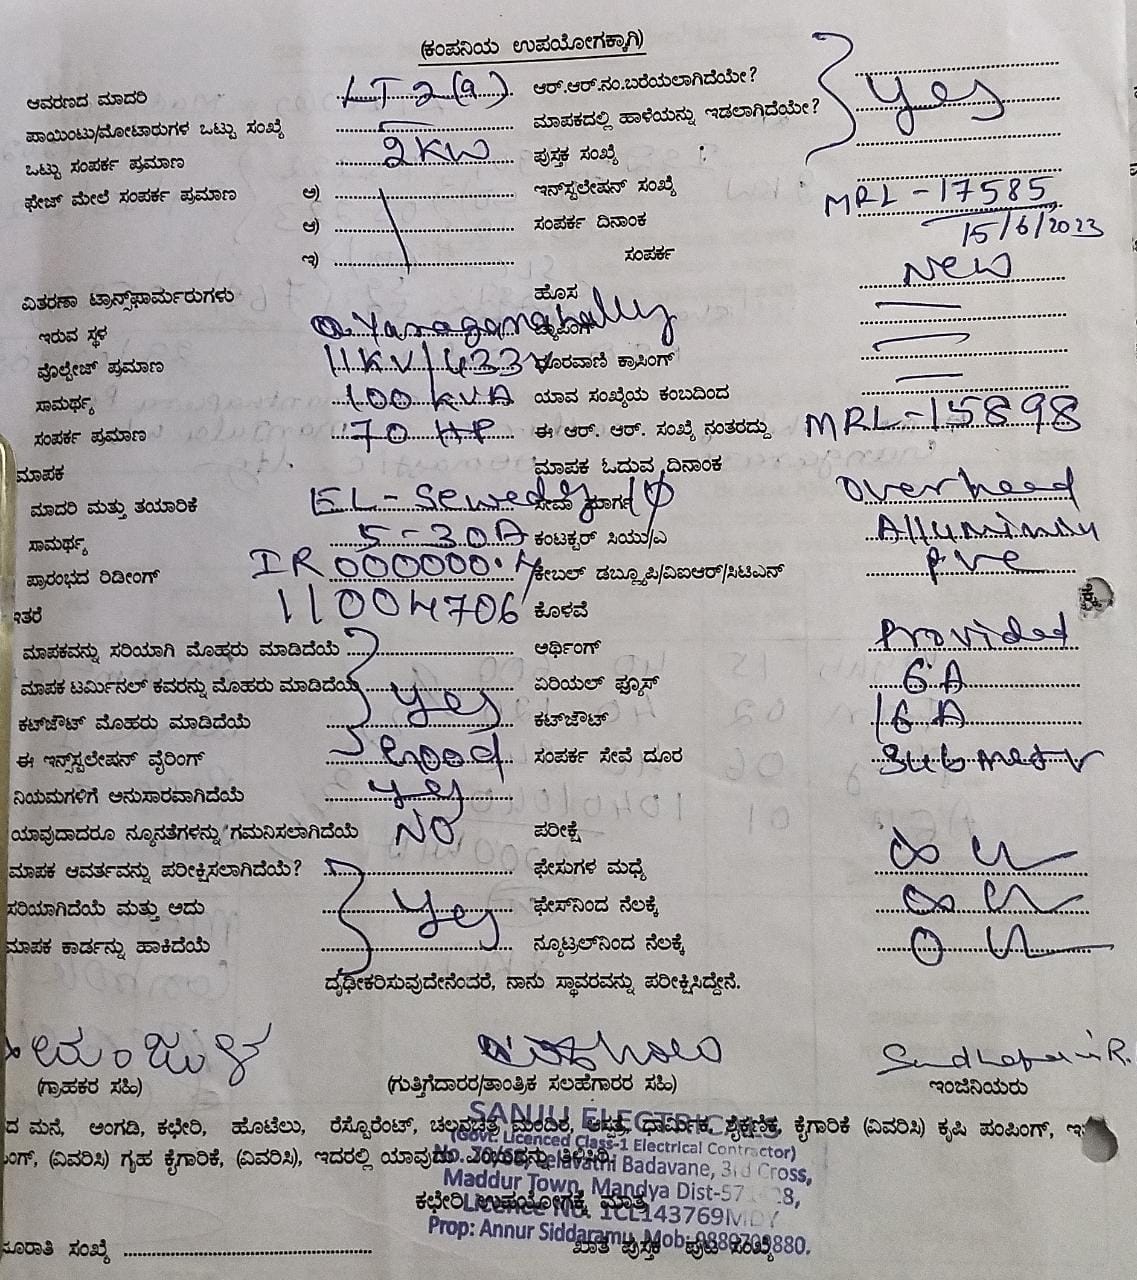 (ಕಂಪನಿಯ ಉಪಯೋಗಕ್ಕಾಗಿ)
ಆವರಣದ ಮಾದರಿ LT2(a) ಆರ್.ಆರ್.ನಂ.ಬರೆಯಲಾಗಿದೆಯೇ? yes
ಪಾಯಿಂಟು/ಮೋಟಾರುಗಳ ಒಟ್ಟು ಸಂಖ್ಯೆ ಮಾಪಕದಲ್ಲಿ ಹಾಳೆಯನ್ನು ಇಡಲಾಗಿದೆಯೇ?
ಒಟ್ಟು ಸಂಪರ್ಕ ಪ್ರಮಾಣ 2KW ಪುಸ್ತಕ ಸಂಖ್ಯೆ :
ಫೇಜ್ ಮೇಲೆ ಸಂಪರ್ಕ ಪ್ರಮಾಣ ಅ) ಇನ್‌ಸ್ಟಲೇಷನ್ ಸಂಖ್ಯೆ MRL-17585
ಆ) ಸಂಪರ್ಕ ದಿನಾಂಕ 15/6/2023
ಇ) ಸಂಪರ್ಕ New
ವಿತರಣಾ ಟ್ರಾನ್ಸ್‌ಫಾರ್ಮರುಗಳು ಹೊಸ
ಇರುವ ಸ್ಥಳ
ವೊಲ್ಟೇಜ್ ಪ್ರಮಾಣ 11KV/433V ದೂರವಾಣಿ ಕ್ರಾಸಿಂಗ್
ಸಾಮರ್ಥ್ಯ 100 KVA ಯಾವ ಸಂಖ್ಯೆಯ ಕಂಬದಿಂದ
ಸಂಪರ್ಕ ಪ್ರಮಾಣ 70 HP ಈ ಆರ್. ಆರ್. ಸಂಖ್ಯೆ ನಂತರದ್ದು MRL-15898
ಮಾಪಕ ಮಾಪಕ ಓದುವ ದಿನಾಂಕ
ಮಾದರಿ ಮತ್ತು ತಯಾರಿಕೆ EL-Sewedy 1φ ಸೇವಾ ಮಾರ್ಗ overhead
ಸಾಮರ್ಥ್ಯ 5-30A ಕಂಟಕ್ಟರ್ ಸಿಯು/ಎ
ಪ್ರಾರಂಭದ ರಿಡೀಂಗ್ IR 000000.4 ಕೇಬಲ್ ಡಬ್ಲ್ಯೂಪಿ/ವಿಐಆರ್/ಸಿಟಿಎಸ್
ಇತರೆ 11004706 ಕೊಳವೆ
ಮಾಪಕವನ್ನು ಸರಿಯಾಗಿ ಮೊಹರು ಮಾಡಿದೆಯೆ ಅರ್ಥಿಂಗ್ Provided
ಮಾಪಕ ಟರ್ಮಿನಲ್ ಕವರನ್ನು ಮೊಹರು ಮಾಡಿದೆಯೆ yes ಏರಿಯಲ್ ಫ್ಯೂಸ್ 6A
ಕಟ್‌ಔಟ್ ಮೊಹರು ಮಾಡಿದೆಯೆ ಕಟ್‌ಔಟ್ 16A
ಈ ಇನ್ಸ್‌ಸ್ಟಲೇಷನ್ ವೈರಿಂಗ್ Good ಸಂಪರ್ಕ ಸೇವೆ ದೂರ
ನಿಯಮಗಳಿಗೆ ಅನುಸಾರವಾಗಿದೆಯೆ yes
ಯಾವುದಾದರೂ ನ್ಯೂನತೆಗಳನ್ನು ಗಮನಿಸಲಾಗಿದೆಯೆ NO ಪರೀಕ್ಷೆ
ಮಾಪಕ ಆವರ್ತವನ್ನು ಪರೀಕ್ಷಿಸಲಾಗಿದೆಯೆ? ಫೇಸುಗಳ ಮಧ್ಯೆ
ಸರಿಯಾಗಿದೆಯೆ ಮತ್ತು ಅದು yes ಫೇಸ್‌ನಿಂದ ನೆಲಕ್ಕೆ
ಮಾಪಕ ಕಾರ್ಡನ್ನು ಹಾಕಿದೆಯೆ ನ್ಯೂಟ್ರಲ್‌ನಿಂದ ನೆಲಕ್ಕೆ
ದೃಢೀಕರಿಸುವುದೇನೆಂದರೆ, ನಾನು ಸ್ಥಾವರವನ್ನು ಪರೀಕ್ಷಿಸಿದ್ದೇನೆ.
ಮಂಜುಳ
(ಗ್ರಾಹಕರ ಸಹಿ) (ಗುತ್ತಿಗೆದಾರರ/ತಾಂತ್ರಿಕ ಸಲಹೆಗಾರರ ಸಹಿ) ಇಂಜಿನಿಯರು
ದ ಮನೆ, ಅಂಗಡಿ, ಕಛೇರಿ, ಹೊಟೆಲು, ರೆಸ್ಟೊರೆಂಟ್, ಚಲನಚಿತ್ರ ಮಂದಿರ, ಆಸ್ಪತ್ರೆ, ಧಾರ್ಮಿಕ, ಶೈಕ್ಷಣಿಕ, ಕೈಗಾರಿಕೆ (ವಿವರಿಸಿ) ಕೃಷಿ ಪಂಪಿಂಗ್,
(ವಿವರಿಸಿ) ಗೃಹ ಕೈಗಾರಿಕೆ, (ವಿವರಿಸಿ), ಇದರಲ್ಲಿ ಯಾವುದು ಎಂಬುದನ್ನು ತಿಳಿಸಿರಿ.
SANJU ELECTRICALS
(Govt. Licenced Class-1 Electrical Contractor)
Badavane, 3rd Cross,
Maddur Town, Mandya Dist-57
1CL143769MDY
Prop: Annur Siddaramu, Mob:
ಕಛೇರಿ ಉಪಯೋಗಕ್ಕೆ ಮಾತ್ರ
ಸಂಖ್ಯೆ ಖಾತೆ ಪುಸ್ತಕ ಪುಟ ಸಂಖ್ಯೆ